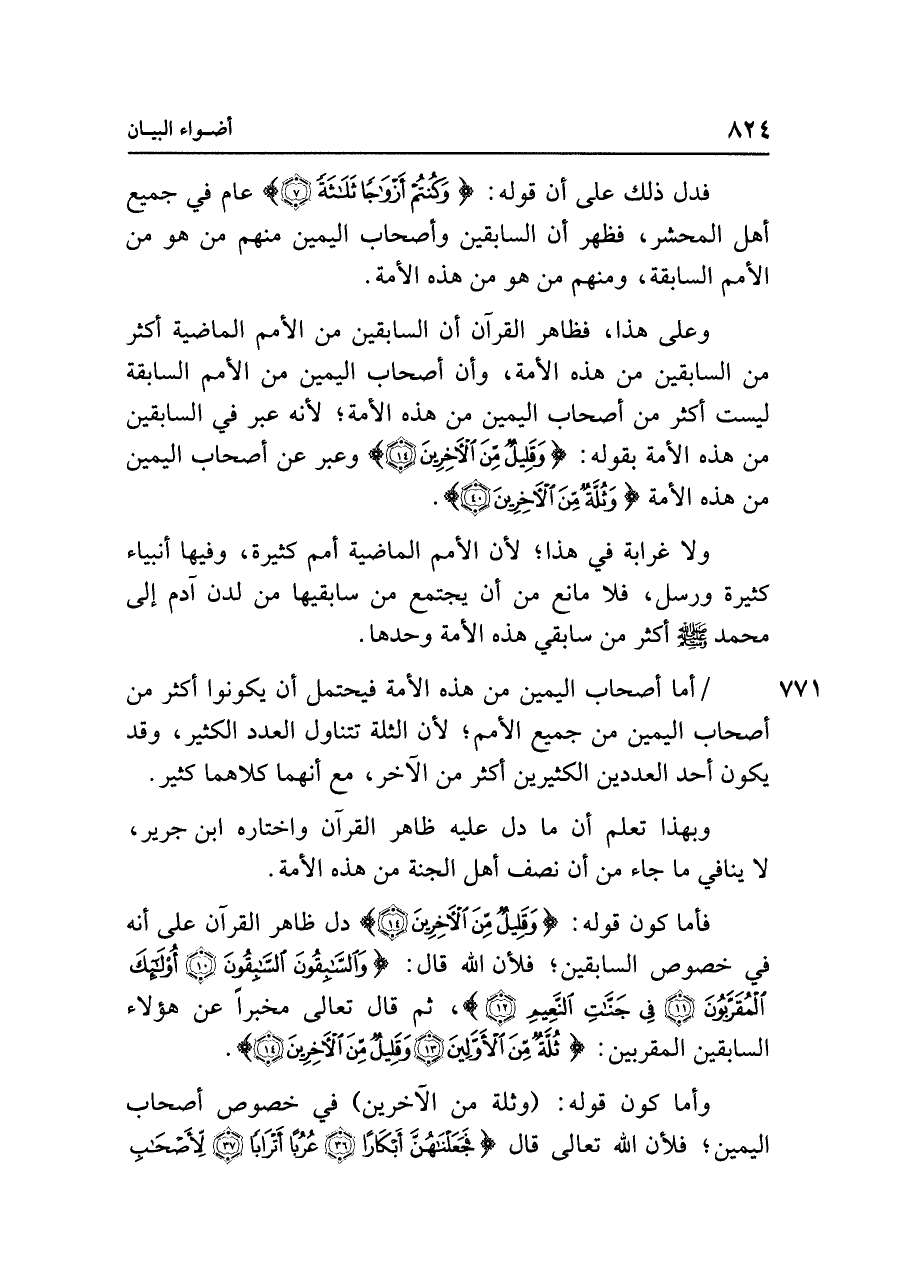 ٨٢٤ أضـواء البيـان
فدل ذلك على أن قوله: ﴿ وَكُنتُمْ أَزْوَٰجًا ثَلَٰثَةً ٧ ﴾ عام في جميع
أهل المحشر، فظهر أن السابقين وأصحاب اليمين منهم من هو من
الأمم السابقة، ومنهم من هو من هذه الأمة.
وعلى هذا، فظاهر القرآن أن السابقين من الأمم الماضية أكثر
من السابقين من هذه الأمة، وأن أصحاب اليمين من الأمم السابقة
ليست أكثر من أصحاب اليمين من هذه الأمة؛ لأنه عبر في السابقين
من هذه الأمة بقوله: ﴿ وَقَلِيلٌ مِّنَ ٱلْأَخِرِينَ ١٤ ﴾ وعبر عن أصحاب اليمين
من هذه الأمة ﴿ وَثُلَّةٌ مِّنَ ٱلْأَخِرِينَ ٤٠ ﴾.
ولا غرابة في هذا؛ لأن الأمم الماضية أمم كثيرة، وفيها أنبياء
كثيرة ورسل، فلا مانع من أن يجتمع من سابقيها من لدن آدم إلى
محمد ﷺ أكثر من سابقي هذه الأمة وحدها.
٧٧١ / أما أصحاب اليمين من هذه الأمة فيحتمل أن يكونوا أكثر من
أصحاب اليمين من جميع الأمم؛ لأن الثلة تتناول العدد الكثير، وقد
يكون أحد العددين الكثيرين أكثر من الآخر، مع أنهما كلاهما كثير.
وبهذا تعلم أن ما دل عليه ظاهر القرآن واختاره ابن جرير،
لا ينافي ما جاء من أن نصف أهل الجنة من هذه الأمة.
فأما كون قوله: ﴿ وَقَلِيلٌ مِّنَ ٱلْأَخِرِينَ ١٤ ﴾ دل ظاهر القرآن على أنه
في خصوص السابقين؛ فلأن الله قال: ﴿ وَٱلسَّٰبِقُونَ ٱلسَّٰبِقُونَ ١٠ أُوْلَٰٓئِكَ
ٱلْمُقَرَّبُونَ ١١ فِى جَنَّٰتِ ٱلنَّعِيمِ ١٢ ﴾، ثم قال تعالى مخبراً عن هؤلاء
السابقين المقربين: ﴿ ثُلَّةٌ مِّنَ ٱلْأَوَّلِينَ ١٣ وَقَلِيلٌ مِّنَ ٱلْأَخِرِينَ ١٤ ﴾.
وأما كون قوله: (وثلة من الآخرين) في خصوص أصحاب
اليمين؛ فلأن الله تعالى قال ﴿ فَجَعَلْنَٰهُنَّ أَبْكَارًا ٣٦ عُرُبًا أَتْرَابًا ٣٧ لِّأَصْحَٰبِ